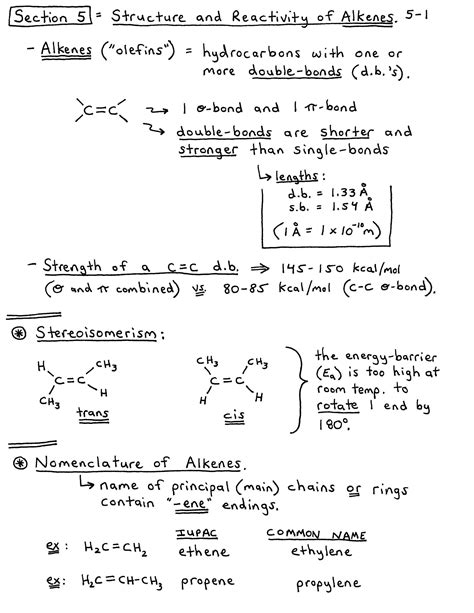 Section 5 = Structure and Reactivity of Alkenes. 5-1
- Alkenes ("olefins") = hydrocarbons with one or
more double-bonds (d.b.'s).
C=C → 1 σ-bond and 1 π-bond
→ double-bonds are shorter and
stronger than single-bonds
↳ lengths:
d.b. = 1.33 Å
s.b. = 1.54 Å
(1 Å = 1 × 10⁻¹⁰ m)
- Strength of a C=C d.b. ⇒ 145-150 kcal/mol
(σ and π combined) vs. 80-85 kcal/mol (C-C σ-bond).
⊛ Stereoisomerism:
H CH₃
C=C
CH₃ H
trans
CH₃ CH₃
C=C
H H
cis
the energy-barrier
(Eₐ) is too high at
room temp. to
rotate 1 end by
180°.
⊛ Nomenclature of Alkenes.
↳ name of principal (main) chains or rings
contain "-ene" endings.
IUPAC COMMON NAME
ex: H₂C=CH₂ ethene ethylene
ex: H₂C=CH-CH₃ propene propylene